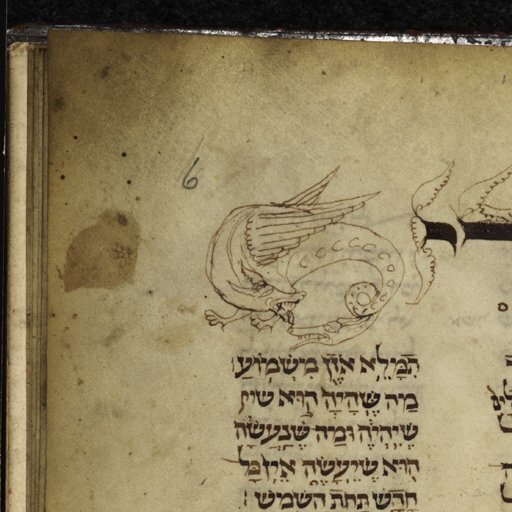 6
תִּמָּלֵא אֹזֶן מִשְּׁמוֹעַ׃
מַה שֶּׁהָיָה הוּא שֶׁיִּ
שֶׁיִּהְיֶה וּמַה שֶּׁנַּעֲשָׂה
הוּא שֶׁיֵּעָשֶׂה אֵין כָּל
חָדָשׁ תַּחַת הַשָּׁמֶשׁ׃